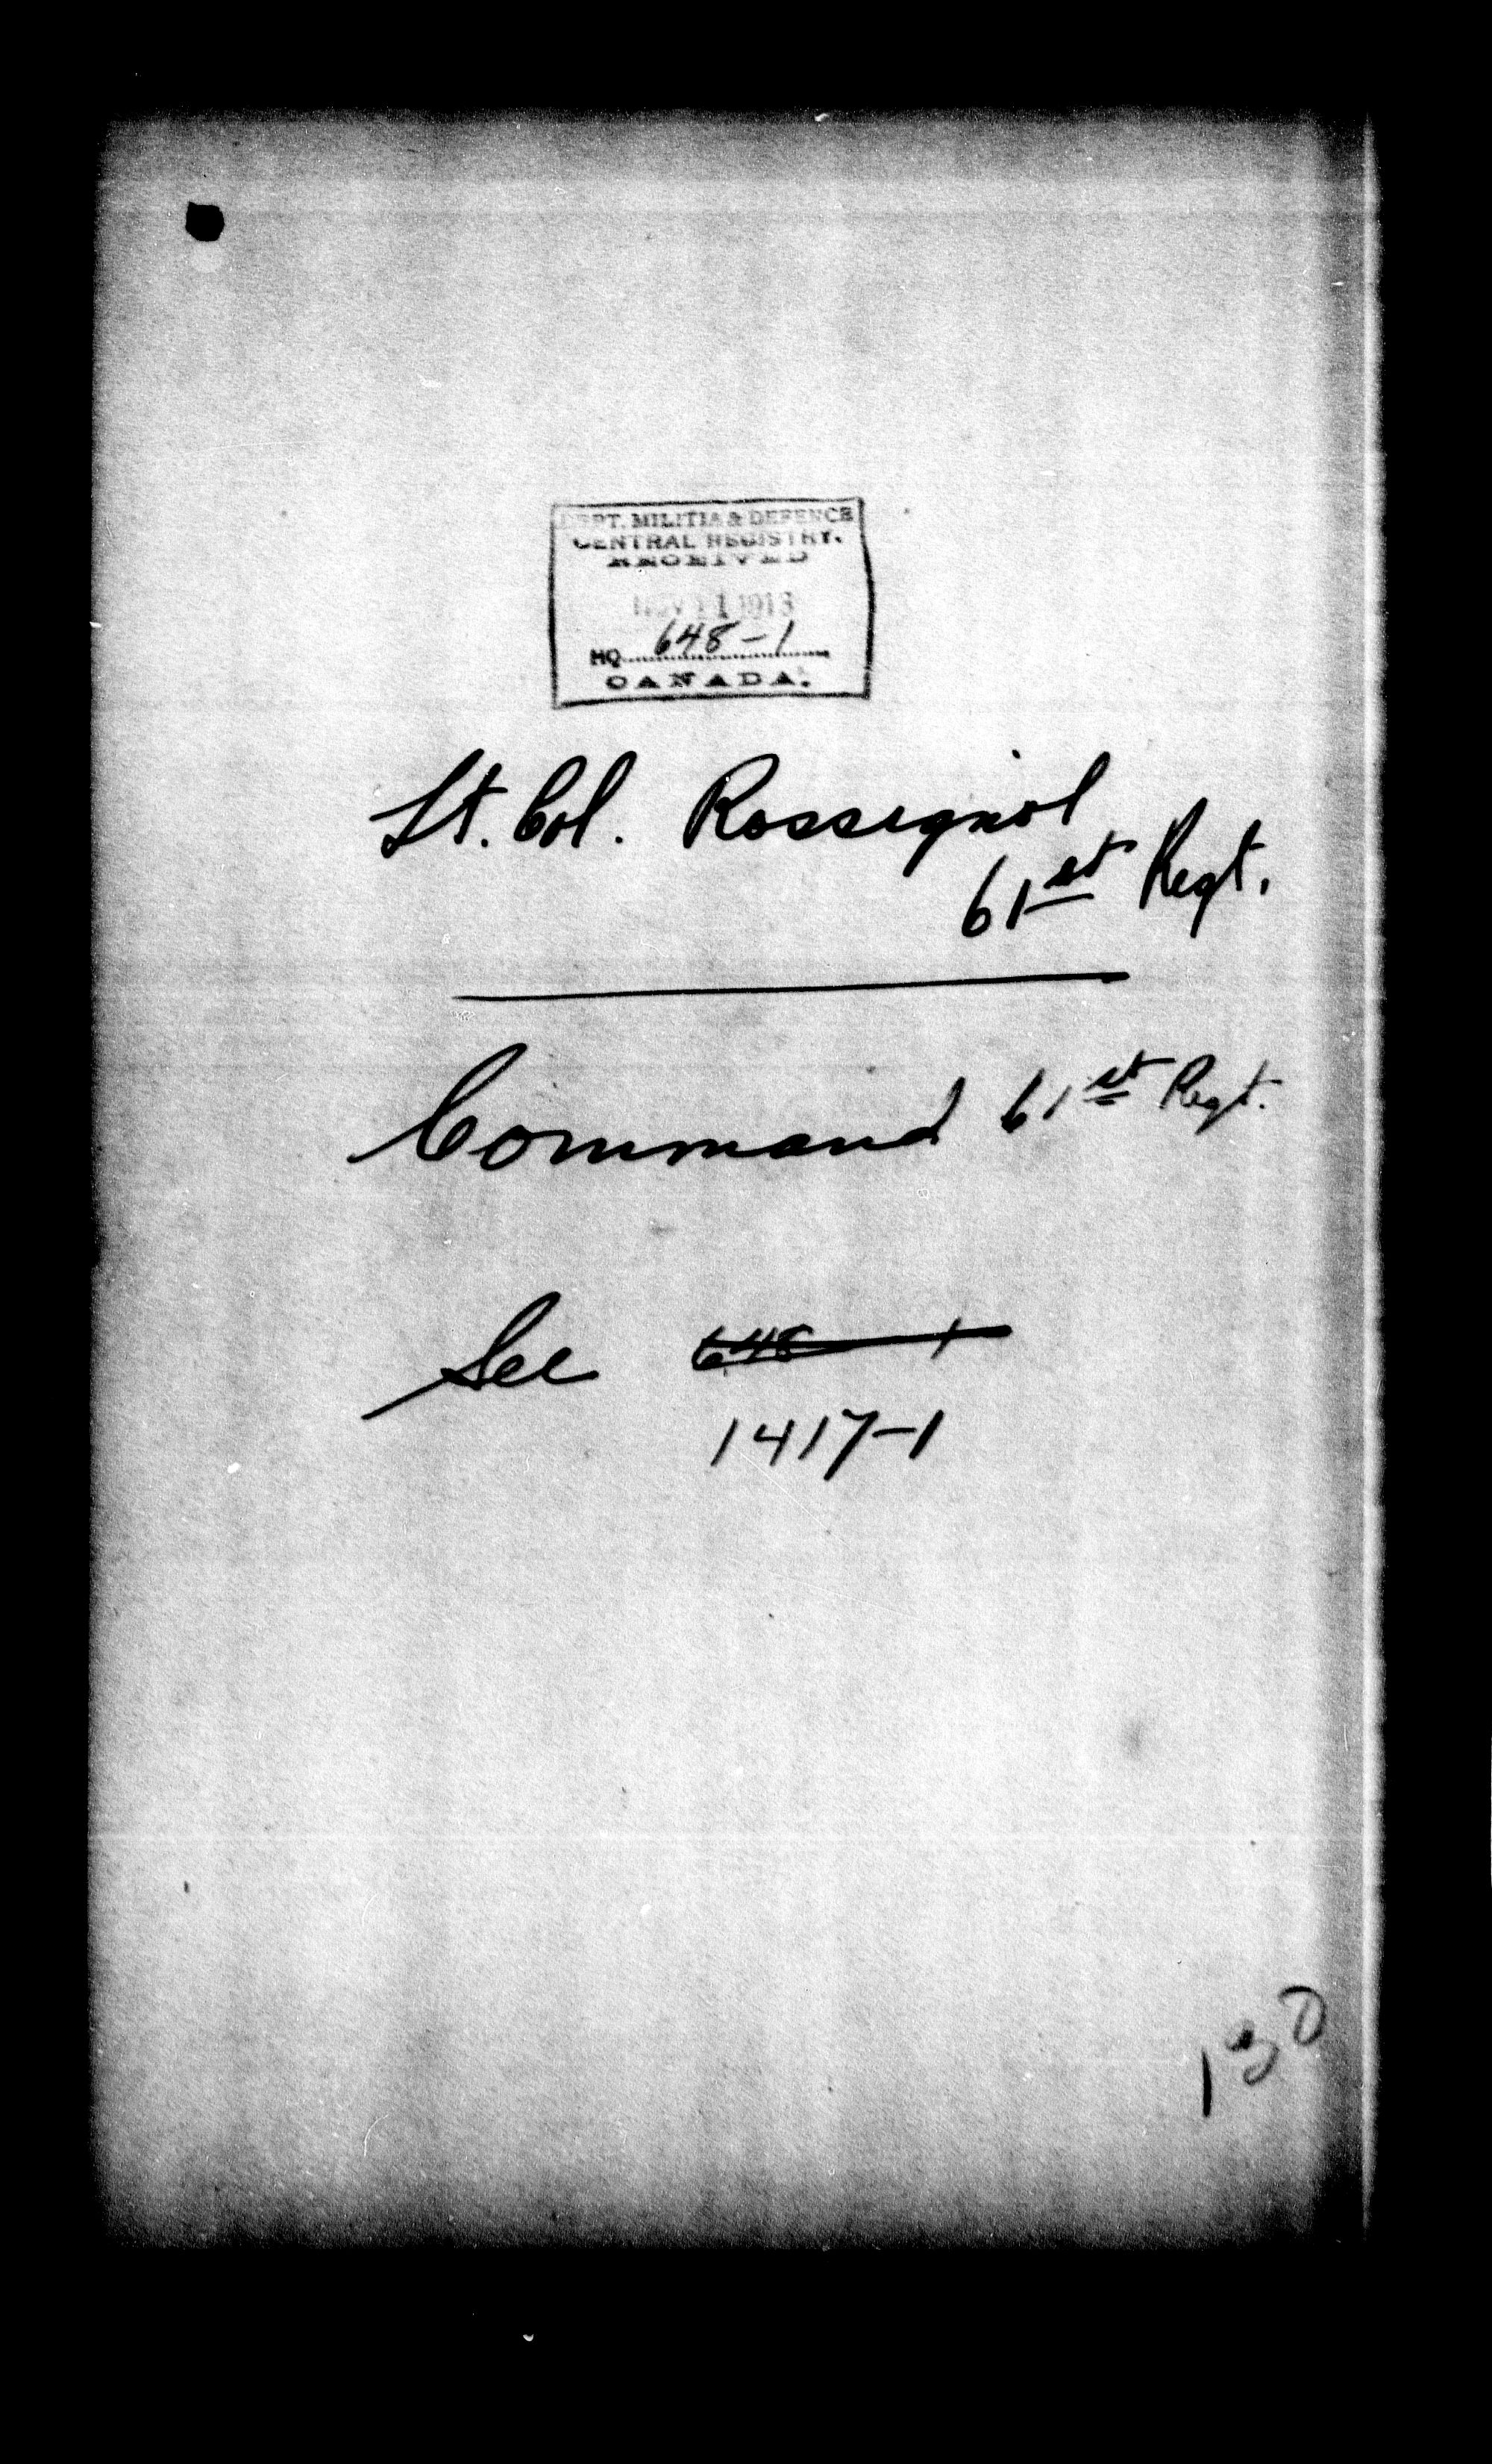 DEPT. MILITIA & DEFENCE
CENTRAL REGISTRY.
RECEIVED
NOV 1913
HQ 648-1
CANADA.
Lt. Col. Rossignol
61st Regt.
Command 61st Regt.
See 648-1
1417-1